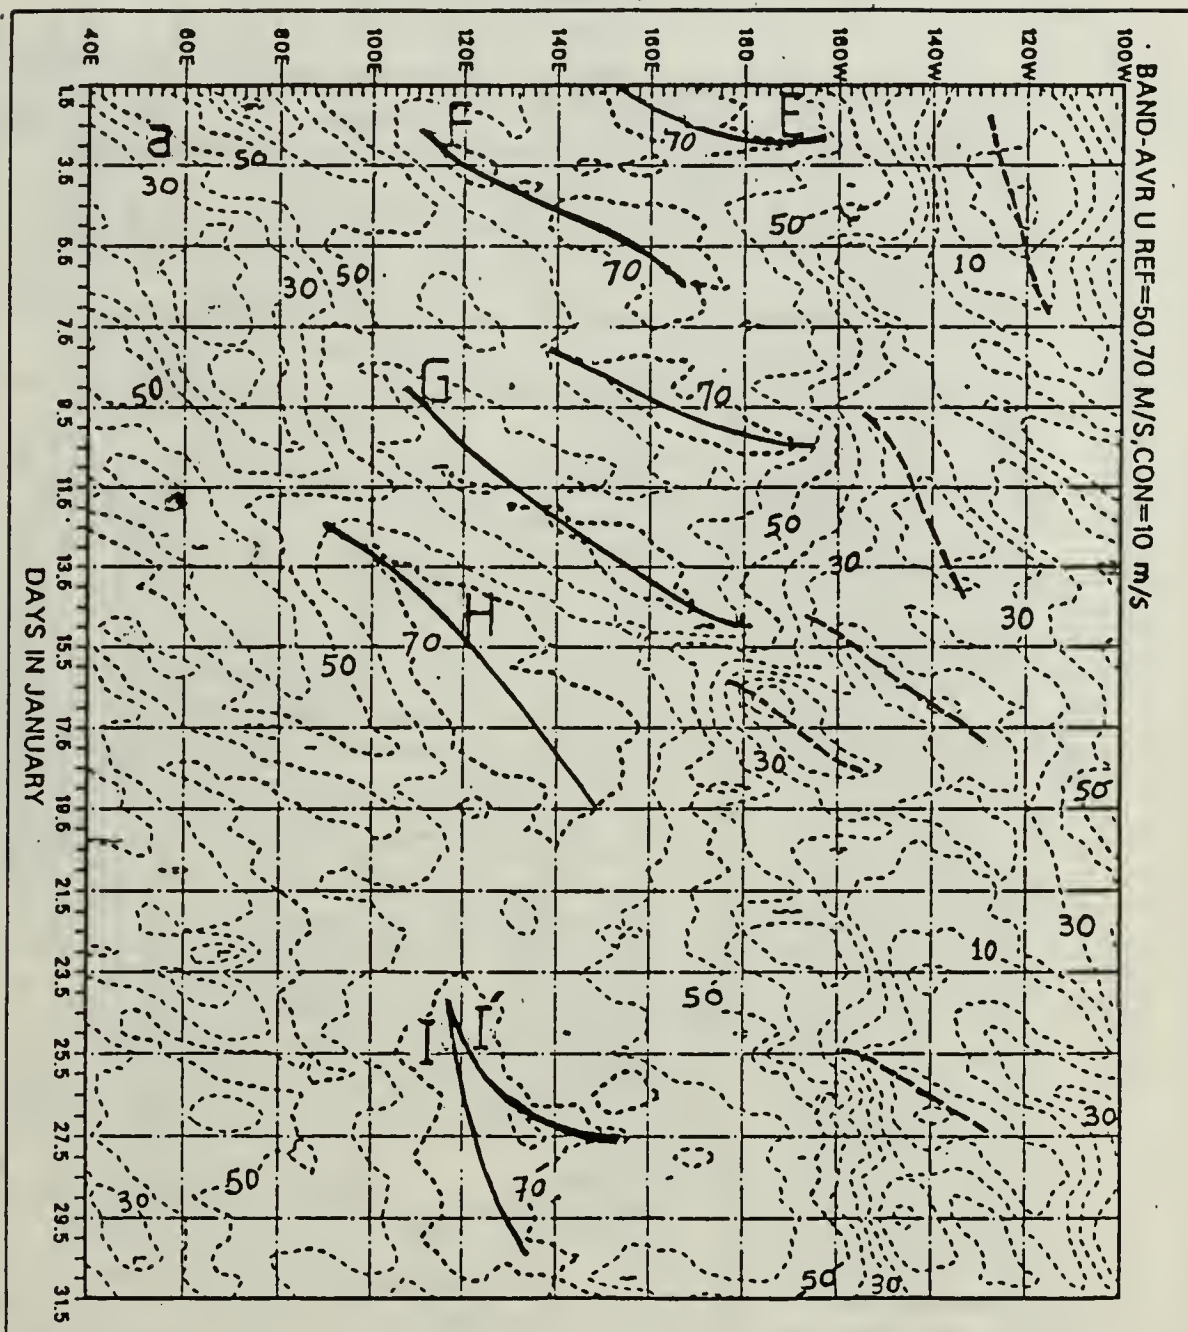 BAND-AVR U REF=50,70 M/S,CON=10 m/s
40E 60E 80E 100E 120E 140E 160E 180 160W 140W 120W 100W
1.5
3.5
5.5
7.5
9.5
11.5
13.5
15.5
17.5
19.5
21.5
23.5
25.5
27.5
29.5
31.5
DAYS IN JANUARY
B
F
E
70
50
30
50
70
10
50
30
G
50
70
50
30
H
70
50
30
30
50
30
10
50
I
I´
30
70
50
30
50
30